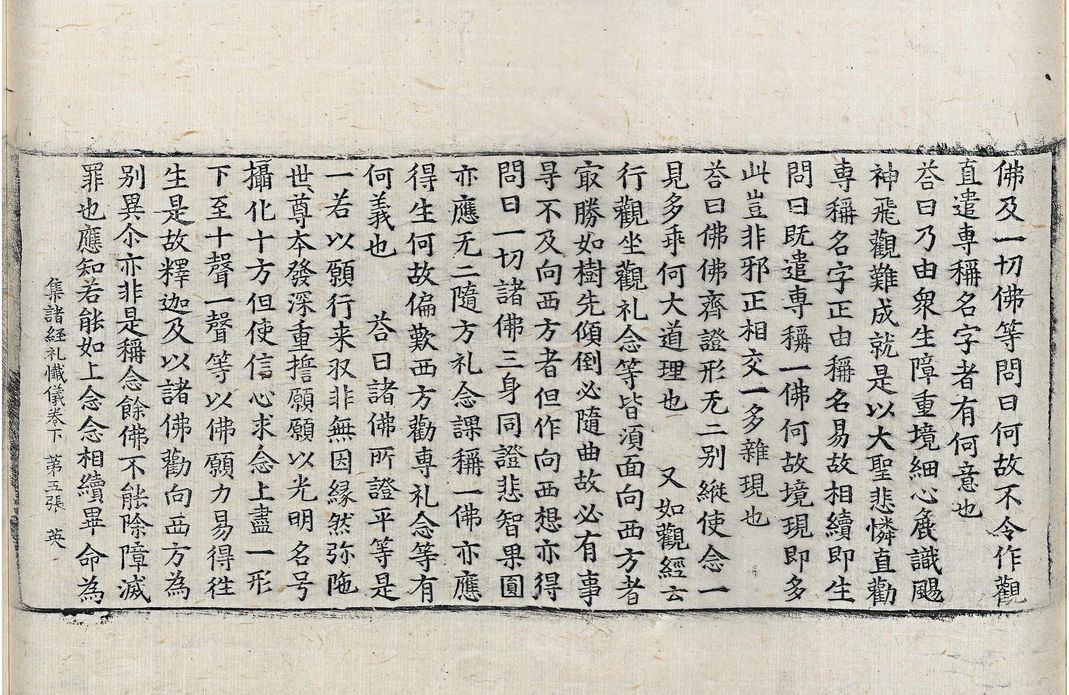 佛及一切佛等問曰何故不令作觀
直遣専稱名字者有何意也
荅曰乃由衆生障重境細心麁識颺
神飛觀難成就是以大聖悲憐直勸
専稱名字正由稱名易故相續即生
問曰既遣専稱一佛何故境現即多
此豈非邪正相交一多雜現也
荅曰佛佛齊證形无二別縱使念一
見多乖何大道理也　又如觀經云
行觀坐觀礼念等皆湏面向西方者
㝡勝如樹先傾倒必隨曲故必有事
㝵不及向西方者但作向西想亦得
問曰一切諸佛三身同證悲智果圓
亦應无二隨方礼念課稱一佛亦應
得生何故偏歎西方勸専礼念等有
何義也　荅曰諸佛所證平等是
一若以願行来収非無因縁然弥陁
世尊本發深重誓願願以光明名号
攝化十方但使信心求念上盡一形
下至十聲一聲等以佛願力易得徃
生是故釋迦及以諸佛勸向西方為
別異尒亦非是稱念餘佛不能除障滅
罪也應知若能如上念念相續畢命為
集諸経礼懴儀卷下　第五張　英